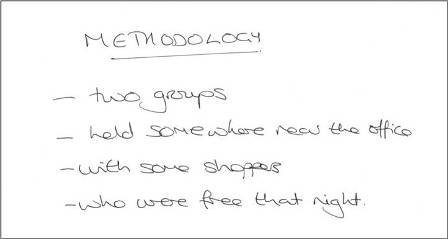 METHODOLOGY
— two groups
— held somewhere near the office
— with some shoppers
— who were free that night.